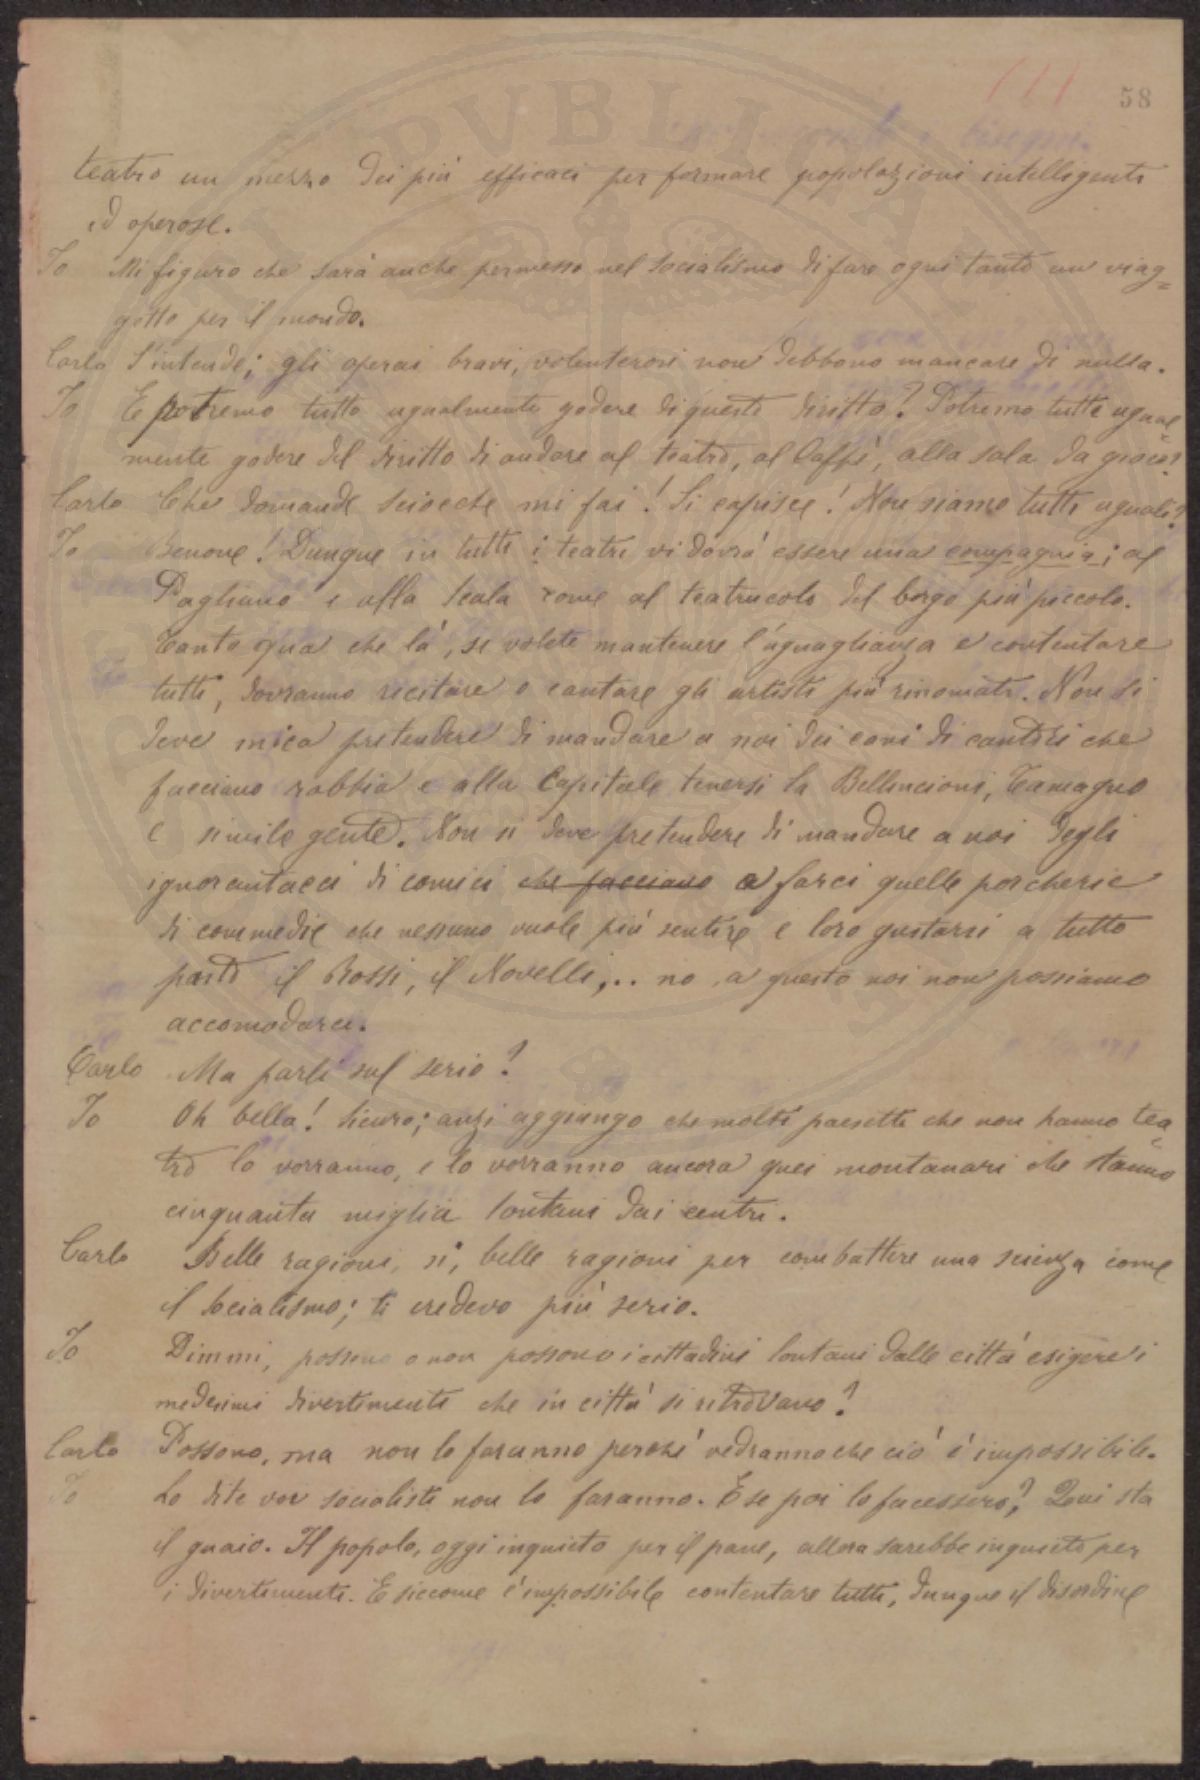 58
teatro un mezzo dei più efficaci per formare popolazioni intelligenti
ed operose.
Io Mi figuro che sarà anche permesso nel socialismo di fare ogni tanto un viag=
getto per il mondo.
Carlo S'intende; gli operai bravi, volenterosi non debbono mancare di nulla.
Io E potremo tutti ugualmente godere di questo diritto? Potremo tutti ugual=
mente godere del diritto di andare al teatro, al Caffè, alla sala da gioco?
Carlo Che domande sciocche mi fai! Si capisce! Non siamo tutti uguali?
Io Benone! Dunque in tutti i teatri vi dovrà essere una compagnia; al
Pagliano e alla Scala come al teatrucolo del borgo più piccolo.
Tanto qua che là, se volete mantenere l'uguaglianza e contentare
tutti, dovranno recitare o cantare gli artisti più rinomati. Non si
deve mica pretendere di mandare a noi dei cani di cantori che
facciano rabbia e alla Capitale tenersi la Bellincioni, Tamagno
e simile gente. Non si deve pretendere di mandare a noi degli
ignorantacci di comici che facciano a farci quelle porcherie
di commedie che nessuno vuole più sentire e loro gustarsi a tutto
pasto il Rossi, il Novelli,.. no, a questo noi non possiamo
accomodarci.
Carlo Ma parli sul serio?
Io Oh bella! Sicuro; anzi aggiungo che molti paesetti che non hanno tea=
tro lo vorranno, e lo vorranno ancora quei montanari che stanno
cinquanta miglia lontani dai centri.
Carlo Belle ragioni, sì, belle ragioni per combattere una scienza come
il socialismo; ti credevo più serio.
Io Dimmi, possono o non possono i cittadini lontani dalle città esigere i
medesimi divertimenti che in città si ritrovano?
Carlo Possono, ma non lo faranno perché vedranno che ciò è impossibile.
Io Lo dite voi socialisti non lo faranno. E se poi lo facessero? Qui sta
il guaio. Il popolo, oggi inquieto per il pane, allora sarebbe inquieto per
i divertimenti. E siccome è impossibile contentare tutti, dunque il disordine